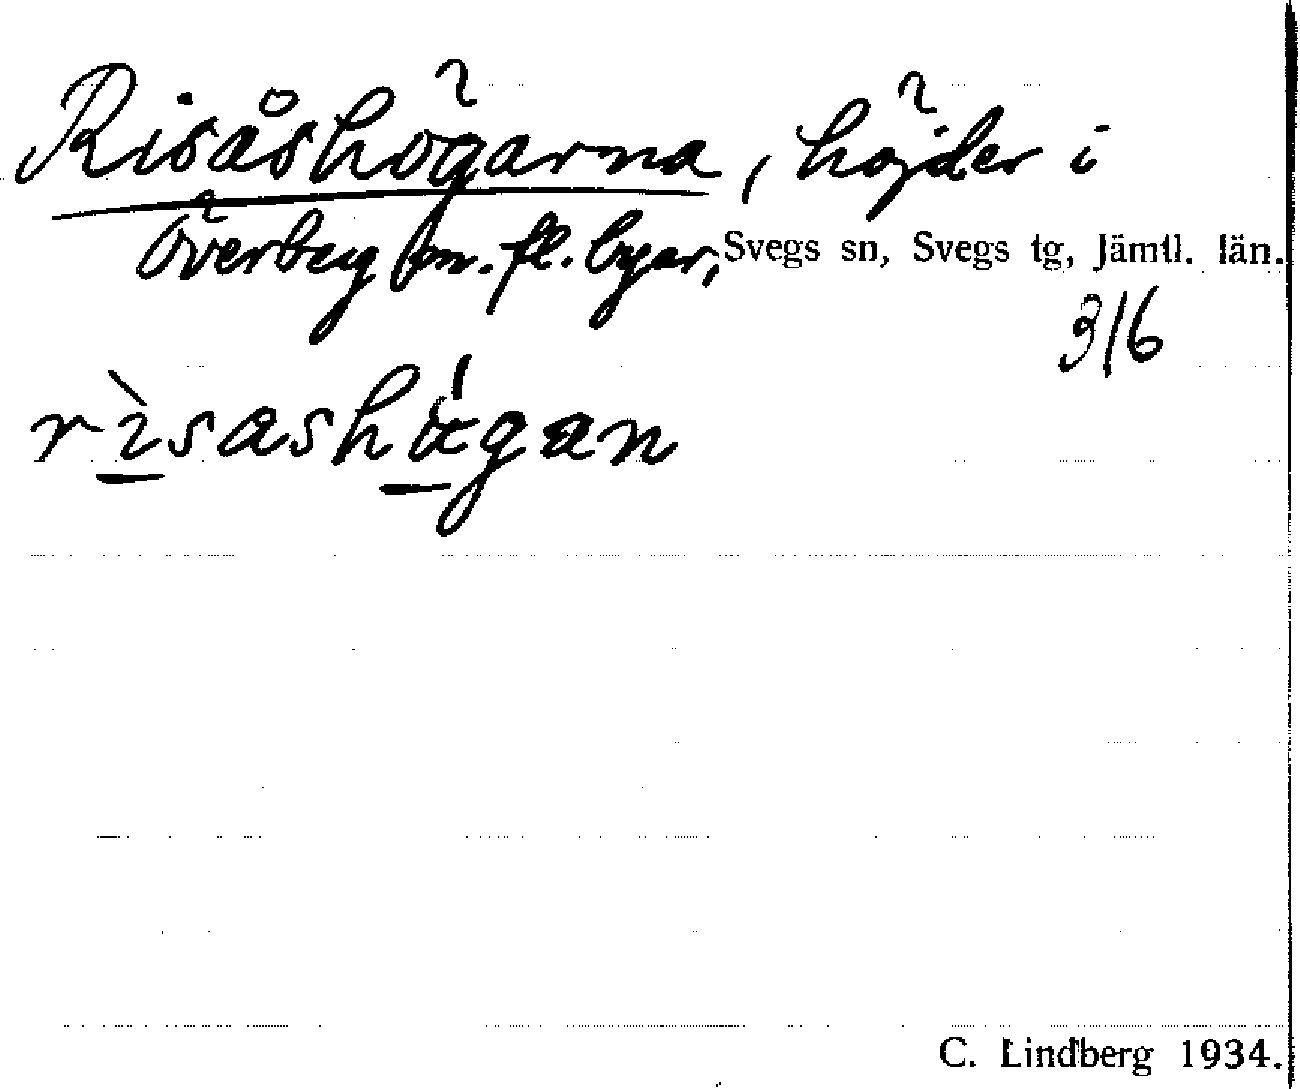 Risåshögarna, höjder i
Överberg m. fl. byar, Svegs sn, Svegs tg, Jämtl. län.
3/6
C. Lindberg 1934.